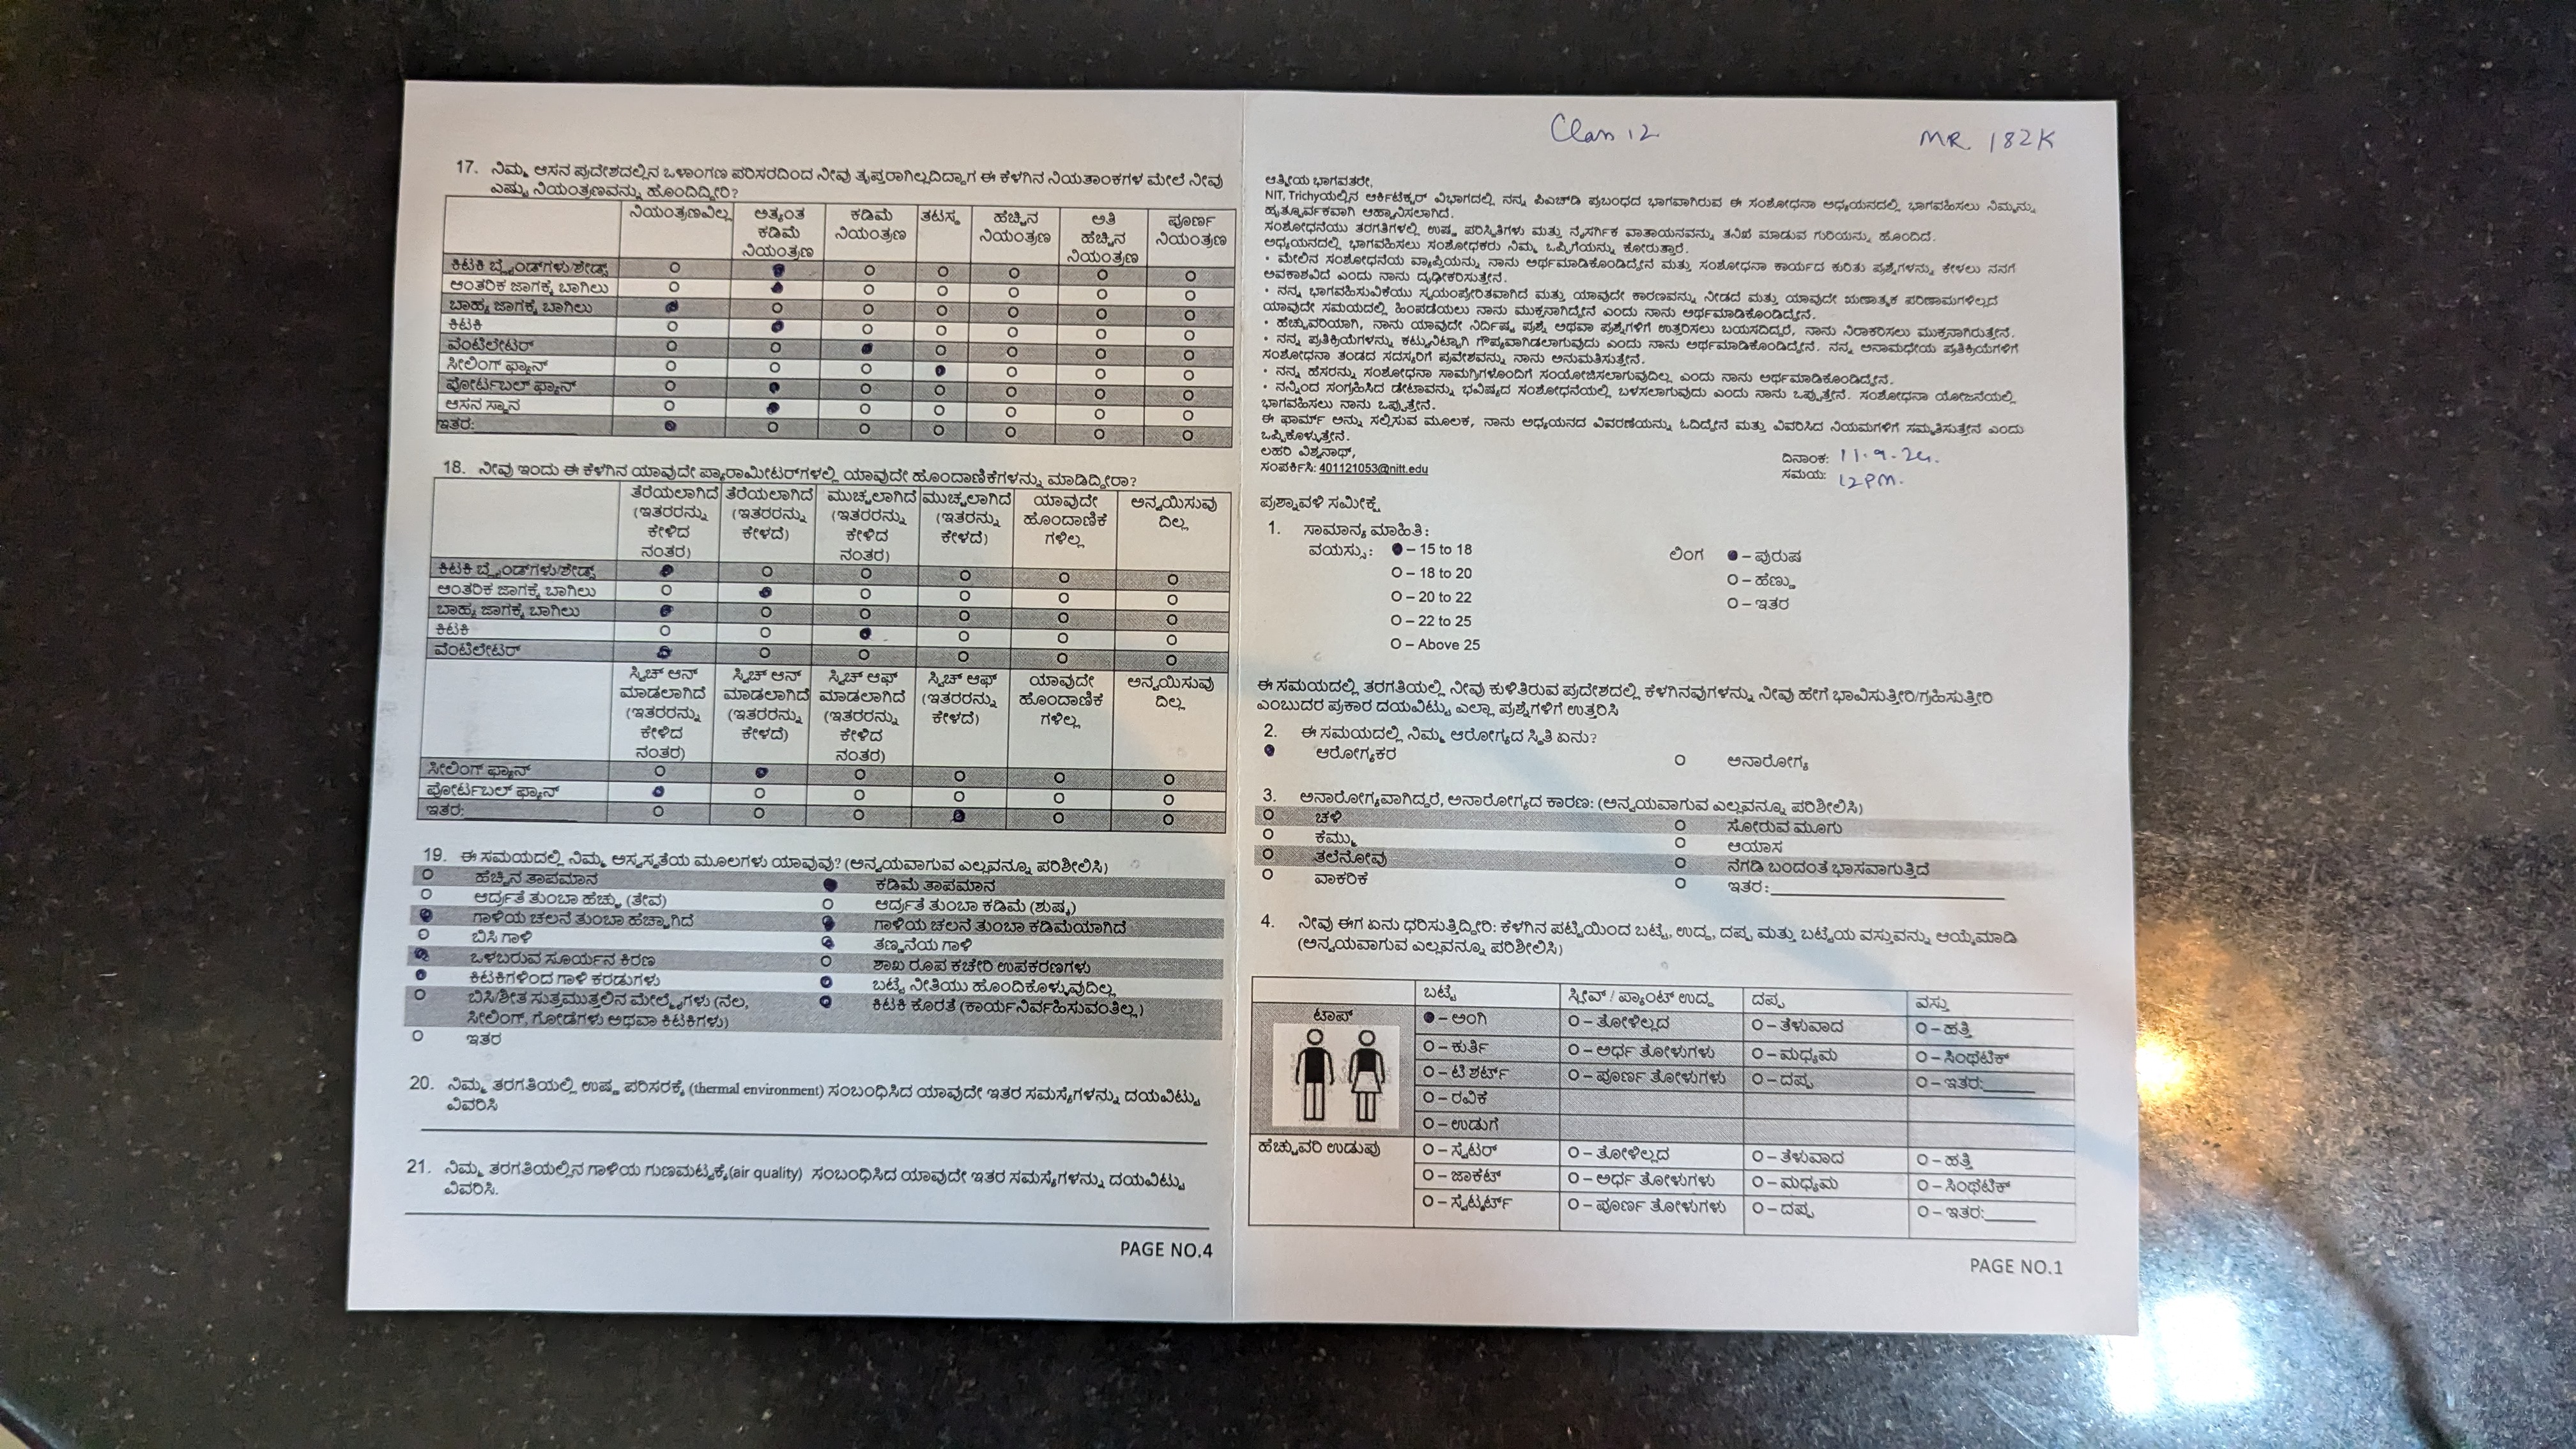 17. ನಿಮ್ಮ ಆಸನ ಪ್ರದೇಶದಲ್ಲಿನ ಒಳಾಂಗಣ ಪರಿಸರದಿಂದ ನೀವು ತೃಪ್ತರಾಗಿಲ್ಲದಿದ್ದಾಗ ಈ ಕೆಳಗಿನ ನಿಯತಾಂಕಗಳ ಮೇಲೆ ನೀವು
ಎಷ್ಟು ನಿಯಂತ್ರಣವನ್ನು ಹೊಂದಿದ್ದೀರಿ?
ನಿಯಂತ್ರಣವಿಲ್ಲ ಅತ್ಯಂತ ಕಡಿಮೆ ನಿಯಂತ್ರಣ ಕಡಿಮೆ ನಿಯಂತ್ರಣ ತಟಸ್ಥ ಹೆಚ್ಚಿನ ನಿಯಂತ್ರಣ ಅತಿ ಹೆಚ್ಚಿನ ನಿಯಂತ್ರಣ ಪೂರ್ಣ ನಿಯಂತ್ರಣ
ಕಿಟಕಿ ಬ್ಲೈಂಡ್‌ಗಳು/ಶೇಡ್ಸ್
ಆಂತರಿಕ ಜಾಗಕ್ಕೆ ಬಾಗಿಲು
ಬಾಹ್ಯ ಜಾಗಕ್ಕೆ ಬಾಗಿಲು
ಕಿಟಕಿ
ವೆಂಟಿಲೇಟರ್
ಸೀಲಿಂಗ್ ಫ್ಯಾನ್
ಪೋರ್ಟಬಲ್ ಫ್ಯಾನ್
ಆಸನ ಸ್ಥಾನ
ಇತರ:
18. ನೀವು ಇಂದು ಈ ಕೆಳಗಿನ ಯಾವುದೇ ಪ್ಯಾರಾಮೀಟರ್‌ಗಳಲ್ಲಿ ಯಾವುದೇ ಹೊಂದಾಣಿಕೆಗಳನ್ನು ಮಾಡಿದ್ದೀರಾ?
ತೆರೆಯಲಾಗಿದೆ (ಇತರರನ್ನು ಕೇಳಿದ ನಂತರ) ತೆರೆಯಲಾಗಿದೆ (ಇತರರನ್ನು ಕೇಳದೆ) ಮುಚ್ಚಲಾಗಿದೆ (ಇತರರನ್ನು ಕೇಳಿದ ನಂತರ) ಮುಚ್ಚಲಾಗಿದೆ (ಇತರನ್ನು ಕೇಳದೆ) ಯಾವುದೇ ಹೊಂದಾಣಿಕೆ ಗಳಿಲ್ಲ ಅನ್ವಯಿಸುವು ದಿಲ್ಲ
ಕಿಟಕಿ ಬ್ಲೈಂಡ್‌ಗಳು/ಶೇಡ್ಸ್
ಆಂತರಿಕ ಜಾಗಕ್ಕೆ ಬಾಗಿಲು
ಬಾಹ್ಯ ಜಾಗಕ್ಕೆ ಬಾಗಿಲು
ಕಿಟಕಿ
ವೆಂಟಿಲೇಟರ್
ಸ್ವಿಚ್ ಆನ್ ಮಾಡಲಾಗಿದೆ (ಇತರರನ್ನು ಕೇಳಿದ ನಂತರ) ಸ್ವಿಚ್ ಆನ್ ಮಾಡಲಾಗಿದೆ (ಇತರರನ್ನು ಕೇಳದೆ) ಸ್ವಿಚ್ ಆಫ್ ಮಾಡಲಾಗಿದೆ (ಇತರರನ್ನು ಕೇಳಿದ ನಂತರ) ಸ್ವಿಚ್ ಆಫ್ (ಇತರರನ್ನು ಕೇಳದೆ) ಯಾವುದೇ ಹೊಂದಾಣಿಕ ಗಳಿಲ್ಲ ಅನ್ವಯಿಸುವು ದಿಲ್ಲ
ಸೀಲಿಂಗ್ ಫ್ಯಾನ್
ಪೋರ್ಟಬಲ್ ಫ್ಯಾನ್
ಇತರ:
19. ಈ ಸಮಯದಲ್ಲಿ ನಿಮ್ಮ ಅಸ್ವಸ್ಥತೆಯ ಮೂಲಗಳು ಯಾವುವು? (ಅನ್ವಯವಾಗುವ ಎಲ್ಲವನ್ನೂ ಪರಿಶೀಲಿಸಿ)
ಹೆಚ್ಚಿನ ತಾಪಮಾನ ಕಡಿಮೆ ತಾಪಮಾನ
ಆರ್ದ್ರತೆ ತುಂಬಾ ಹೆಚ್ಚು (ತೇವ) ಆರ್ದ್ರತೆ ತುಂಬಾ ಕಡಿಮೆ (ಶುಷ್ಕ)
ಗಾಳಿಯ ಚಲನೆ ತುಂಬಾ ಹೆಚ್ಚಾಗಿದೆ ಗಾಳಿಯ ಚಲನೆ ತುಂಬಾ ಕಡಿಮೆಯಾಗಿದೆ
ಬಿಸಿ ಗಾಳಿ ತಣ್ಣನೆಯ ಗಾಳಿ
ಒಳಬರುವ ಸೂರ್ಯನ ಕಿರಣ ಶಾಖ ರೂಪ ಕಚೇರಿ ಉಪಕರಣಗಳು
ಕಿಟಕಿಗಳಿಂದ ಗಾಳಿ ಕರಡುಗಳು ಬಟ್ಟೆ ನೀತಿಯು ಹೊಂದಿಕೊಳ್ಳುವುದಿಲ್ಲ
ಬಿಸಿ/ಶೀತ ಸುತ್ತಮುತ್ತಲಿನ ಮೇಲ್ಮೈಗಳು (ನೆಲ, ಕಿಟಕಿ ಕೊರತೆ (ಕಾರ್ಯನಿರ್ವಹಿಸುವಂತಿಲ್ಲ)
ಸೀಲಿಂಗ್, ಗೋಡೆಗಳು ಅಥವಾ ಕಿಟಕಿಗಳು)
ಇತರ
20. ನಿಮ್ಮ ತರಗತಿಯಲ್ಲಿ ಉಷ್ಣ ಪರಿಸರಕ್ಕೆ (thermal environment) ಸಂಬಂಧಿಸಿದ ಯಾವುದೇ ಇತರ ಸಮಸ್ಯೆಗಳನ್ನು ದಯವಿಟ್ಟು
ವಿವರಿಸಿ
21. ನಿಮ್ಮ ತರಗತಿಯಲ್ಲಿನ ಗಾಳಿಯ ಗುಣಮಟ್ಟಕ್ಕೆ(air quality) ಸಂಬಂಧಿಸಿದ ಯಾವುದೇ ಇತರ ಸಮಸ್ಯೆಗಳನ್ನು ದಯವಿಟ್ಟು
ವಿವರಿಸಿ.
PAGE NO.4
Class 12 MR 182K
ಆತ್ಮೀಯ ಭಾಗವತರೇ,
NIT, Trichyಯಲ್ಲಿನ ಆರ್ಕಿಟೆಕ್ಚರ್ ವಿಭಾಗದಲ್ಲಿ ನನ್ನ ಪಿಎಚ್‌ಡಿ ಪ್ರಬಂಧದ ಭಾಗವಾಗಿರುವ ಈ ಸಂಶೋಧನಾ ಅಧ್ಯಯನದಲ್ಲಿ ಭಾಗವಹಿಸಲು ನಿಮ್ಮನ್ನು
ಹೃತ್ಪೂರ್ವಕವಾಗಿ ಆಹ್ವಾನಿಸಲಾಗಿದೆ.
ಸಂಶೋಧನೆಯು ತರಗತಿಗಳಲ್ಲಿ ಉಷ್ಣ ಪರಿಸ್ಥಿತಿಗಳು ಮತ್ತು ನೈಸರ್ಗಿಕ ವಾತಾಯನವನ್ನು ತನಿಖೆ ಮಾಡುವ ಗುರಿಯನ್ನು ಹೊಂದಿದೆ.
ಅಧ್ಯಯನದಲ್ಲಿ ಭಾಗವಹಿಸಲು ಸಂಶೋಧಕರು ನಿಮ್ಮ ಒಪ್ಪಿಗೆಯನ್ನು ಕೋರುತ್ತಾರೆ.
• ಮೇಲಿನ ಸಂಶೋಧನೆಯ ವ್ಯಾಪ್ತಿಯನ್ನು ನಾನು ಅರ್ಥಮಾಡಿಕೊಂಡಿದ್ದೇನೆ ಮತ್ತು ಸಂಶೋಧನಾ ಕಾರ್ಯದ ಕುರಿತು ಪ್ರಶ್ನೆಗಳನ್ನು ಕೇಳಲು ನನಗೆ
ಅವಕಾಶವಿದೆ ಎಂದು ನಾನು ದೃಢೀಕರಿಸುತ್ತೇನೆ.
• ನನ್ನ ಭಾಗವಹಿಸುವಿಕೆಯು ಸ್ವಯಂಪ್ರೇರಿತವಾಗಿದೆ ಮತ್ತು ಯಾವುದೇ ಕಾರಣವನ್ನು ನೀಡದೆ ಮತ್ತು ಯಾವುದೇ ಋಣಾತ್ಮಕ ಪರಿಣಾಮಗಳಿಲ್ಲದೆ
ಯಾವುದೇ ಸಮಯದಲ್ಲಿ ಹಿಂಪಡೆಯಲು ನಾನು ಮುಕ್ತನಾಗಿದ್ದೇನೆ ಎಂದು ನಾನು ಅರ್ಥಮಾಡಿಕೊಂಡಿದ್ದೇನೆ.
• ಹೆಚ್ಚುವರಿಯಾಗಿ, ನಾನು ಯಾವುದೇ ನಿರ್ದಿಷ್ಟ ಪ್ರಶ್ನೆ ಅಥವಾ ಪ್ರಶ್ನೆಗಳಿಗೆ ಉತ್ತರಿಸಲು ಬಯಸದಿದ್ದರೆ, ನಾನು ನಿರಾಕರಿಸಲು ಮುಕ್ತನಾಗಿರುತ್ತೇನೆ.
• ನನ್ನ ಪ್ರತಿಕ್ರಿಯೆಗಳನ್ನು ಕಟ್ಟುನಿಟ್ಟಾಗಿ ಗೌಪ್ಯವಾಗಿಡಲಾಗುವುದು ಎಂದು ನಾನು ಅರ್ಥಮಾಡಿಕೊಂಡಿದ್ದೇನೆ. ನನ್ನ ಅನಾಮಧೇಯ ಪ್ರತಿಕ್ರಿಯೆಗಳಿಗೆ
ಸಂಶೋಧನಾ ತಂಡದ ಸದಸ್ಯರಿಗೆ ಪ್ರವೇಶವನ್ನು ನಾನು ಅನುಮತಿಸುತ್ತೇನೆ.
• ನನ್ನ ಹೆಸರನ್ನು ಸಂಶೋಧನಾ ಸಾಮಗ್ರಿಗಳೊಂದಿಗೆ ಸಂಯೋಜಿಸಲಾಗುವುದಿಲ್ಲ ಎಂದು ನಾನು ಅರ್ಥಮಾಡಿಕೊಂಡಿದ್ದೇನೆ.
• ನನ್ನಿಂದ ಸಂಗ್ರಹಿಸಿದ ಡೇಟಾವನ್ನು ಭವಿಷ್ಯದ ಸಂಶೋಧನೆಯಲ್ಲಿ ಬಳಸಲಾಗುವುದು ಎಂದು ನಾನು ಒಪ್ಪುತ್ತೇನೆ. ಸಂಶೋಧನಾ ಯೋಜನೆಯಲ್ಲಿ
ಭಾಗವಹಿಸಲು ನಾನು ಒಪ್ಪುತ್ತೇನೆ.
ಈ ಫಾರ್ಮ್ ಅನ್ನು ಸಲ್ಲಿಸುವ ಮೂಲಕ, ನಾನು ಅಧ್ಯಯನದ ವಿವರಣೆಯನ್ನು ಓದಿದ್ದೇನೆ ಮತ್ತು ವಿವರಿಸಿದ ನಿಯಮಗಳಿಗೆ ಸಮ್ಮತಿಸುತ್ತೇನೆ ಎಂದು
ಒಪ್ಪಿಕೊಳ್ಳುತ್ತೇನೆ.
ಲಹರಿ ವಿಶ್ವನಾಥ್,
ಸಂಪರ್ಕಿಸಿ: 401121053@nitt.edu
ದಿನಾಂಕ: 11.9.24.
ಸಮಯ: 12PM.
ಪ್ರಶ್ನಾವಳಿ ಸಮೀಕ್ಷೆ
1. ಸಾಮಾನ್ಯ ಮಾಹಿತಿ:
ವಯಸ್ಸು: – 15 to 18 ಲಿಂಗ – ಪುರುಷ
O – 18 to 20 O – ಹೆಣ್ಣು
O – 20 to 22 O – ಇತರ
O – 22 to 25
O – Above 25
ಈ ಸಮಯದಲ್ಲಿ ತರಗತಿಯಲ್ಲಿ ನೀವು ಕುಳಿತಿರುವ ಪ್ರದೇಶದಲ್ಲಿ ಕೆಳಗಿನವುಗಳನ್ನು ನೀವು ಹೇಗೆ ಭಾವಿಸುತ್ತೀರಿ/ಗ್ರಹಿಸುತ್ತೀರಿ
ಎಂಬುದರ ಪ್ರಕಾರ ದಯವಿಟ್ಟು ಎಲ್ಲಾ ಪ್ರಶ್ನೆಗಳಿಗೆ ಉತ್ತರಿಸಿ
2. ಈ ಸಮಯದಲ್ಲಿ ನಿಮ್ಮ ಆರೋಗ್ಯದ ಸ್ಥಿತಿ ಏನು?
ಆರೋಗ್ಯಕರ O ಅನಾರೋಗ್ಯ
3. ಅನಾರೋಗ್ಯವಾಗಿದ್ದರೆ, ಅನಾರೋಗ್ಯದ ಕಾರಣ: (ಅನ್ವಯವಾಗುವ ಎಲ್ಲವನ್ನೂ ಪರಿಶೀಲಿಸಿ)
ಚಳಿ ಸೋರುವ ಮೂಗು
ಕೆಮ್ಮು ಆಯಾಸ
ತಲೆನೋವು ನೆಗಡಿ ಬಂದಂತೆ ಭಾಸವಾಗುತ್ತಿದೆ
ವಾಕರಿಕೆ ಇತರ:
4. ನೀವು ಈಗ ಏನು ಧರಿಸುತ್ತಿದ್ದೀರಿ: ಕೆಳಗಿನ ಪಟ್ಟಿಯಿಂದ ಬಟ್ಟೆ, ಉದ್ದ, ದಪ್ಪ ಮತ್ತು ಬಟ್ಟೆಯ ವಸ್ತುವನ್ನು ಆಯ್ಕೆಮಾಡಿ
(ಅನ್ವಯವಾಗುವ ಎಲ್ಲವನ್ನೂ ಪರಿಶೀಲಿಸಿ)
ಬಟ್ಟೆ ಸ್ಲೀವ್ / ಪ್ಯಾಂಟ್ ಉದ್ದ ದಪ್ಪ ವಸ್ತು
ಟಾಪ್ – ಅಂಗಿ O – ತೋಳಿಲ್ಲದ O – ತೆಳುವಾದ O – ಹತ್ತಿ
O – ಕುರ್ತಿ O – ಅರ್ಧ ತೋಳುಗಳು O – ಮಧ್ಯಮ O – ಸಿಂಥೆಟಿಕ್
O – ಟಿ ಶರ್ಟ್ O – ಪೂರ್ಣ ತೋಳುಗಳು O – ದಪ್ಪ O – ಇತರ:
O – ರವಿಕೆ
O – ಉಡುಗೆ
ಹೆಚ್ಚುವರಿ ಉಡುಪು O – ಸ್ವೆಟರ್ O – ತೋಳಿಲ್ಲದ O – ತೆಳುವಾದ O – ಹತ್ತಿ
O – ಜಾಕೆಟ್ O – ಅರ್ಧ ತೋಳುಗಳು O – ಮಧ್ಯಮ O – ಸಿಂಥೆಟಿಕ್
O – ಸ್ವೆಟ್ಶರ್ಟ್ O – ಪೂರ್ಣ ತೋಳುಗಳು O – ದಪ್ಪ O – ಇತರ:
PAGE NO.1